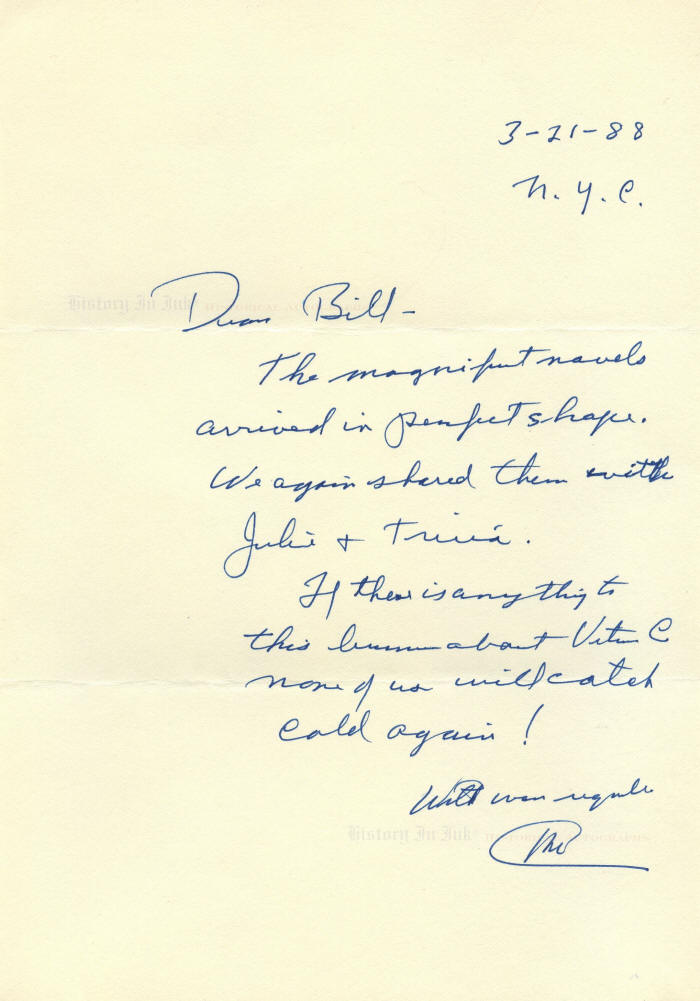 3-21-88
N.Y.C.
Dear Bill-
History In Ink HISTORICAL
The magnificent navels
arrived in perfect shape.
We again shared them with
Julie + Tricia.
If there is anything to
this about Vitamin C
none of us will catch
cold again!
With warm regards
History In Ink HISTORICAL AUTOGRAPHS
RN